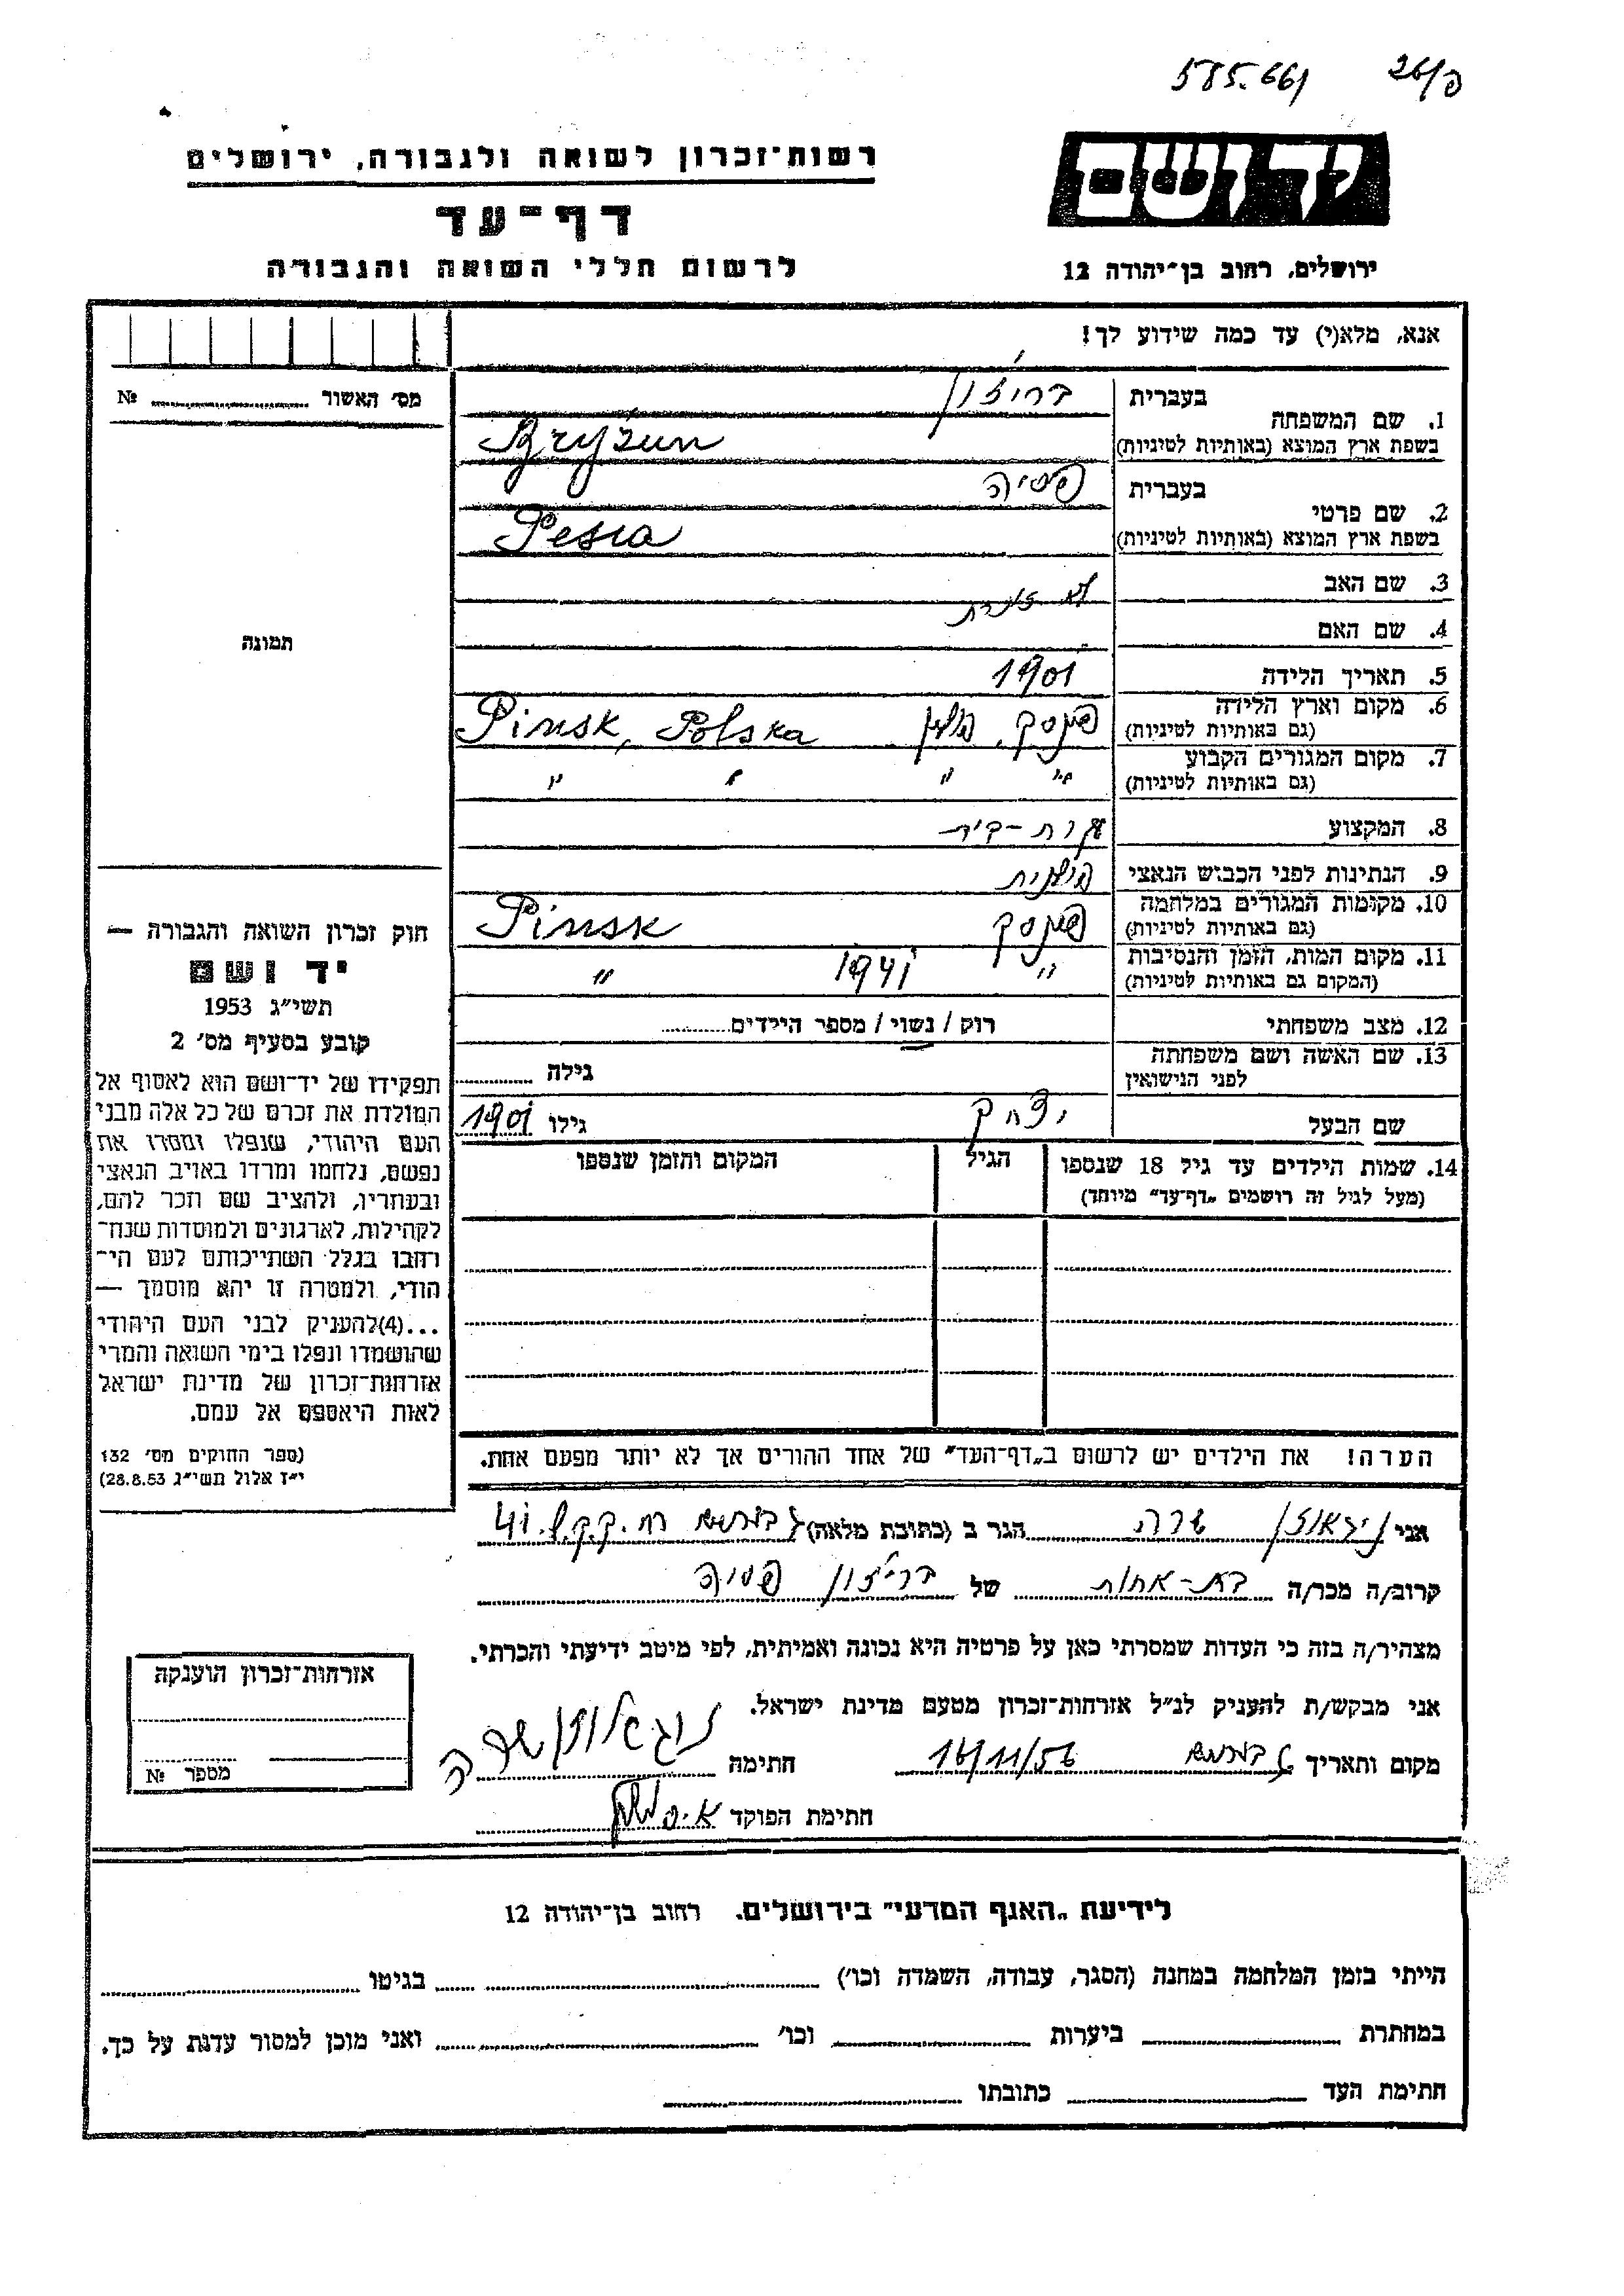 585.661 פ/26
רשות־זכרון לשואה ולגבורה, ירושלים
דף־עד
לרשום חללי השואה והגבורה
יד ושם
ירושלים, רחוב בן־יהודה 12
אנא, מלא(י) עד כמה שידוע לך!
מס׳ האשור № ........
1. שם המשפחה
בעברית בריזון
בשפת ארץ המוצא (באותיות לטיניות) Bryżun
2. שם פרטי
בעברית פסיה
בשפת ארץ המוצא (באותיות לטיניות) Pesia
3. שם האב לא זוכרת
4. שם האם
5. תאריך הלידה 1901
6. מקום וארץ הלידה (גם באותיות לטיניות) פינסק, פולין Pinsk, Polska
7. מקום המגורים הקבוע (גם באותיות לטיניות) " " " "
8. המקצוע עקרת-בית
9. הנתינות לפני הכבוש הנאצי פולנית
10. מקומות המגורים במלחמה (גם באותיות לטיניות) פינסק Pinsk
11. מקום המות, הזמן והנסיבות (המקום גם באותיות לטיניות) " 1941 "
12. מצב משפחתי רוק / נשוי / מספר הילדים........
13. שם האשה ושם משפחתה לפני הנישואין גילה ........
שם הבעל יצחק גילו 1901
14. שמות הילדים עד גיל 18 שנספו הגיל המקום והזמן שנספו
(מעל לגיל זה רושמים „דף־עד״ מיוחד)
הערה! את הילדים יש לרשום ב„דף־העד״ של אחד ההורים אך לא יותר מפעם אחת.
תמונה
חוק זכרון השואה והגבורה —
יד ושם
תשי״ג 1953
קובע בסעיף מס׳ 2
תפקידו של יד־ושם הוא לאסוף אל
המולדת את זכרם של כל אלה מבני
העם היהודי, שנפלו ומסרו את
נפשם, נלחמו ומרדו באויב הנאצי
ובעוזריו, ולהציב שם וזכר להם,
לקהילות, לארגונים ולמוסדות שנח־
רחבו בגלל השתייכותם לעם הי־
הודי, ולמטרה זו יהא מוסמך —
...(4)להעניק לבני העם היהודי
שהושמדו ונפלו בימי השואה והמרי
אזרחות־זכרון של מדינת ישראל
לאות היאספם אל עמם.
(ספר החוקים מס׳ 132
י״ז אלול תשי״ג 28.8.53)
אני שרה הגר ב (כתובת מלאה) 41
קרוב/ה מכר/ה בת-אחות של בריזון פסיה
מצהיר/ה בזה כי העדות שמסרתי כאן על פרטיה היא נכונה ואמיתית, לפי מיטב ידיעתי והכרתי.
אני מבקש/ת להעניק לנ״ל אזרחות־זכרון מטעם מדינת ישראל.
מקום ותאריך 16/11/56 חתימה שרה
חתימת הפוקד
אזרחות־זכרון הוענקה
מספר №
לידיעת „האגף המדעי״ בירושלים. רחוב בן־יהודה 12
הייתי בזמן המלחמה במחנה (הסגר, עבודה, השמדה וכו׳) ........ בגיטו ........
במחתרת ........ ביערות ........ וכו׳ ........ ואני מוכן למסור עדות על כך.
חתימת העד ........ כתובתו ........